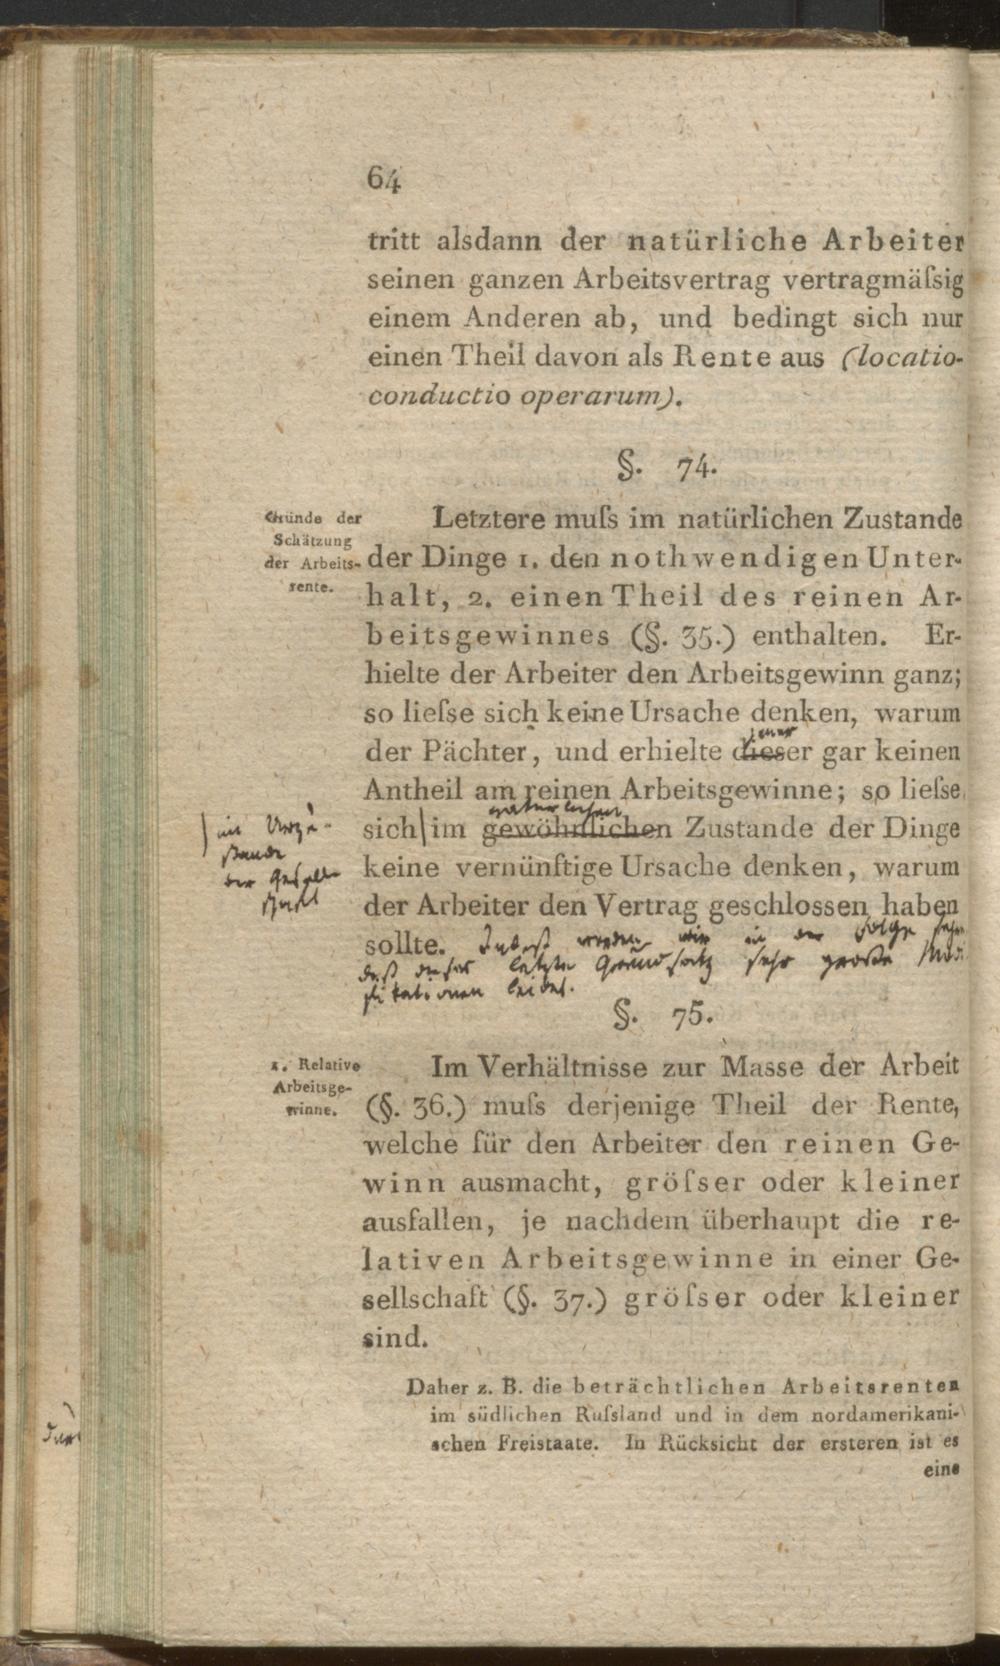 64
tritt alsdann der natürliche Arbeiter
seinen ganzen Arbeitsvertrag vertragmäſsig
einem Anderen ab, und bedingt sich nur
einen Theil davon als Rente aus (locatio-
conductio operarum).
§. 74.
Gründe der
Schätzung
der Arbeits-
rente.
Letztere muſs im natürlichen Zustande
der Dinge 1. den nothwendigen Unter-
halt, 2. einen Theil des reinen Ar-
beitsgewinnes (§. 35.) enthalten. Er-
hielte der Arbeiter den Arbeitsgewinn ganz;
so lieſse sich keine Ursache denken, warum
jener
der Pächter, und erhielte dieser gar keinen
Antheil am reinen Arbeitsgewinne; so lieſse
natürlichen
sich im gewöhnlichen Zustande der Dinge
im
der Gesell
schaft
keine vernünftige Ursache denken, warum
der Arbeiter den Vertrag geschlossen haben
sollte. Indeß werden wir in der Folge sehn
daß dieser letzte Grundsatz sehr große Modi
fikationen leidet.
§. 75.
1. Relative
Arbeitsge-
winne.
Im Verhältnisse zur Masse der Arbeit
(§. 36.) muſs derjenige Theil der Rente,
welche für den Arbeiter den reinen Ge-
winn ausmacht, gröſser oder kleiner
ausfallen, je nachdem überhaupt die re-
lativen Arbeitsgewinne in einer Ge-
sellschaft (§. 37.) gröſser oder kleiner
sind.
Daher z. B. die beträchtlichen Arbeitsrenten
im südlichen Ruſsland und in dem nordamerikani-
schen Freistaate. In Rücksicht der ersteren ist es
eine